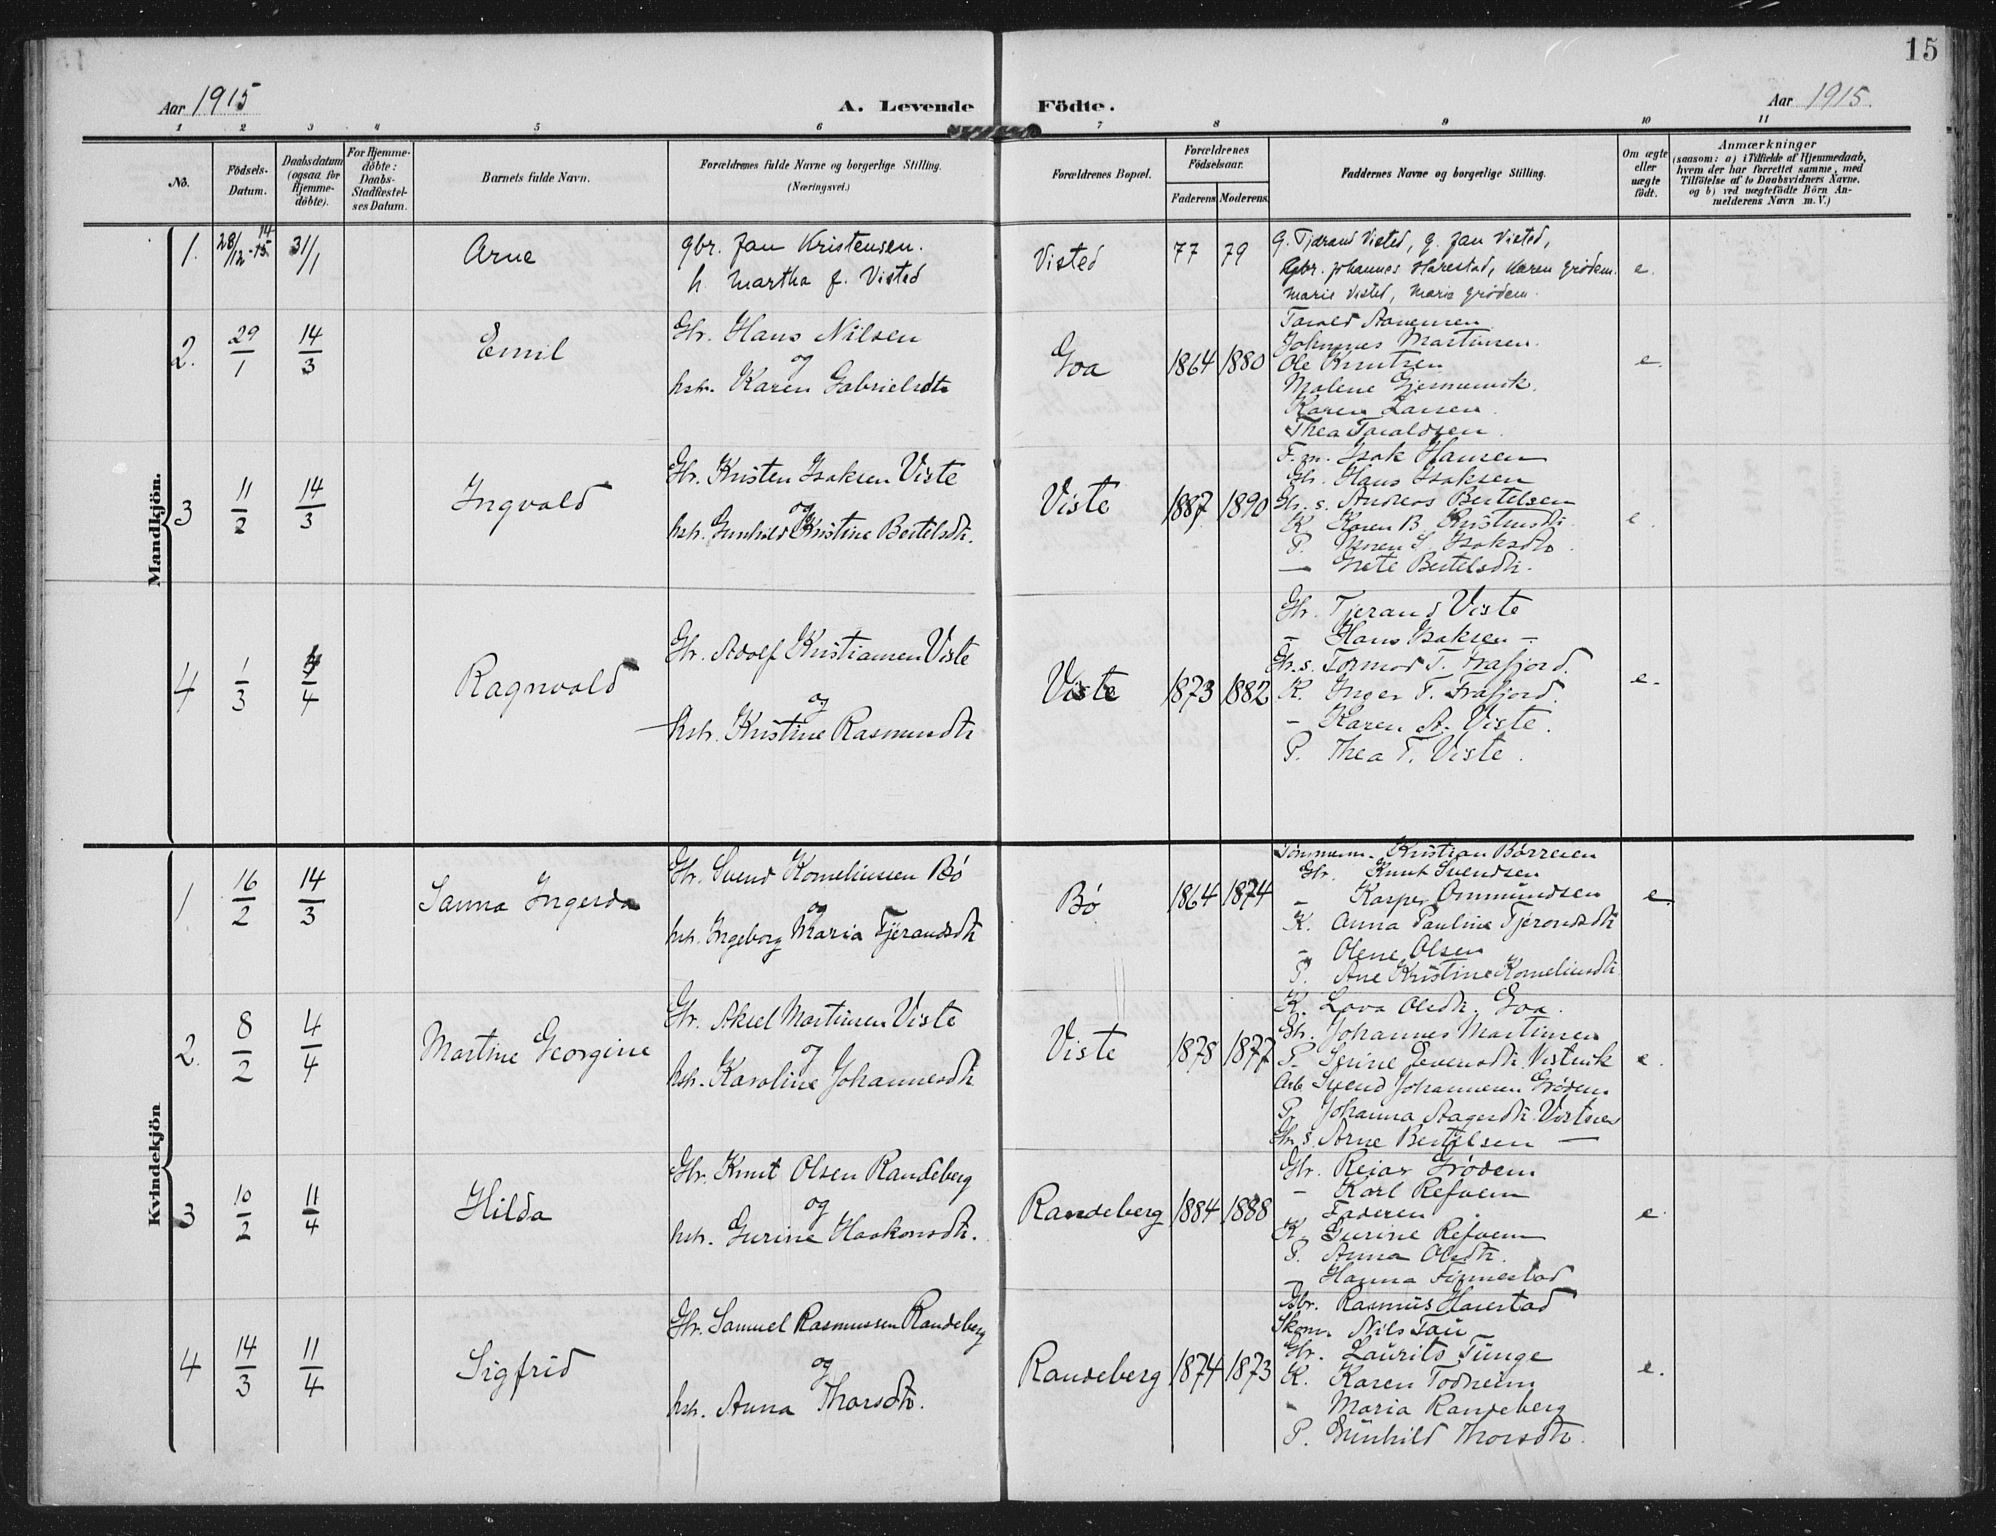 15
Aar 1915
A. Levende Födte.
Aar 1915.
1 2 3 4 5 6 7 8 9 10 11
No.
Födsels-Datum.
Daabsdatum (ogsaa for Hjemme-döbte).
For Hjemme-döbte: Daabs-Stadfæstel-ses Datum.
Barnets fulde Navn.
Forældrenes fulde Navne og borgerlige Stilling. (Næringsvei.)
Forældrenes Bopæl.
Forældrenes Födselsaar.
Faderens Moderens
Faddernes Navne og borgerlige Stilling.
Om ægte eller uægte födt.
Anmærkninger
(saasom: a) i Tilfælde af Hjemmedaab, hvem der har forrettet samme, med Tilföielse af to Daabsvidners Navne. og b) ved uægtefödte Börn An-melderens Navn m. V.)
Mandkjön.
1. 28/12 14-15 31/1 Arne
gbr. Jan Kristensen.
h. Martha f. Visted
Visted 77 79
G. Tjærand Visted, g. Jan Visted,
Gbr. Johannes Harestad, Karen Grødem.
Marie Visted, Marie Grødem.
e.
2. 29/1 14/3 Emil
Gbr. Hans Nilsen
og
hstr. Karen Gabrielsdtr
Goa 1864 1880
Johannes Martinsen.
Ole Knutsen
Malene
Karen Larsen.
Thea Taraldsen.
e.
3 11/2 14/3 Ingvald
Gbr. Kristen Isaksen Viste
og
hstr. Gunhild Kristine Bertelsdtr.
Viste 1887 1890
F.m. Isak Hansen
Gbr. Hans Isaksen
Gbr. s. Andreas Bertelsen
K. Karen B. Kristensdtr.
P. Isaksdtr.
— Grete Bertelsdtr.
e.
4 1/3 5/4 Ragnvald
Gbr. Adolf Kristiansen Viste
og
hstr. Kristine Rasmusdtr
Viste 1873 1882
Gbr. Tjerand Viste
— Hans Isaksen —
Gbr. s. Tormod T. Frafjord.
K. Inger T. Frafjord.
— Karen A. Viste.
P. Thea T. Viste.
e.
Kvindekjön
1 16/2 14/3 Sanna Ingerda
Gbr. Svend Korneliussen Bö
og
hstr. Ingeborg Maria Tjerandsdtr
Bö 1864 1874
Tömmerm. Kristian Börresen
Gbr. Knut Svendsen
— Kasper Ommundsen
K. Anna Pauline Tjerandsdtr
— Olene Olsen
P. Ane Kristine Korneliusdtr
e.
2. 8/2 4/4 Martine Georgine
Gbr. Aksel Martinsen Viste
og
hstr. Karoline Johannesdtr
Viste 1878 1877
K. Lava Olsdtr. Goa.
Gbr. Johannes Martinsen
P. Serine
Arb. Svend Johannesen Grödem.
P. Johanna Aagesdtr.
Gbr. s. Arne Bertelsen —
e.
3 10/2 11/4 Hilda
Gbr. Knut Olsen Randeberg
og
hstr. Gurine Haakonsdtr.
Randeberg 1884 1888
Gbr. Reiar Grödem
— Karl Refsem
— Faderen
K. Gurine Refsem
P. Anna Olsdtr.
— Hanna Finnestad
e.
4 14/3 11/4 Sigfrid
Gbr. Samuel Rasmussen Randeberg
og
hstr. Anna Thorsdtr.
Randeberg 1874 1873
Gbr. Rasmus Harestad
Skom. Nils Tau
Gbr. Laurits Tunge
K. Karen Todneim
— Maria Randeberg
P. Gunhild Thorsdtr.
e.